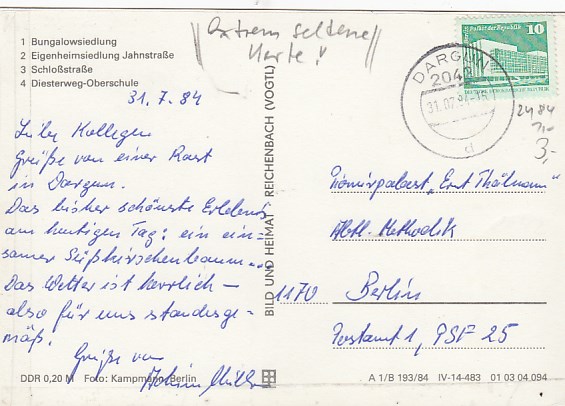 extrem seltene
Karte!
1 Bungalowsiedlung
2 Eigenheimsiedlung Jahnstraße
3 Schloßstraße
4 Diesterweg-Oberschule
31.7.84
Liebe Kollegen
Grüße von einer Rast
in Dargun.
Das bisher schönste Erlebnis
am heutigen Tag: ein ein-
samer Süßkirschenbaum...
Das Wetter ist herrlich –
also für uns standesge-
mäß.
Grüße von
Achim Müller
DDR 0,20 M Foto: Kampmann, Berlin
BILD UND HEIMAT REICHENBACH (VOGTL)
Palast der Republik
10
DARGUN
2042
31.07.84
d
2484
3,-
Pionierpalast „Ernst Thälmann"
Abtl. Methodik
1170 Berlin
Postamt 1, PSF 25
A 1/B 193/84 IV-14-483 01 03 04 094